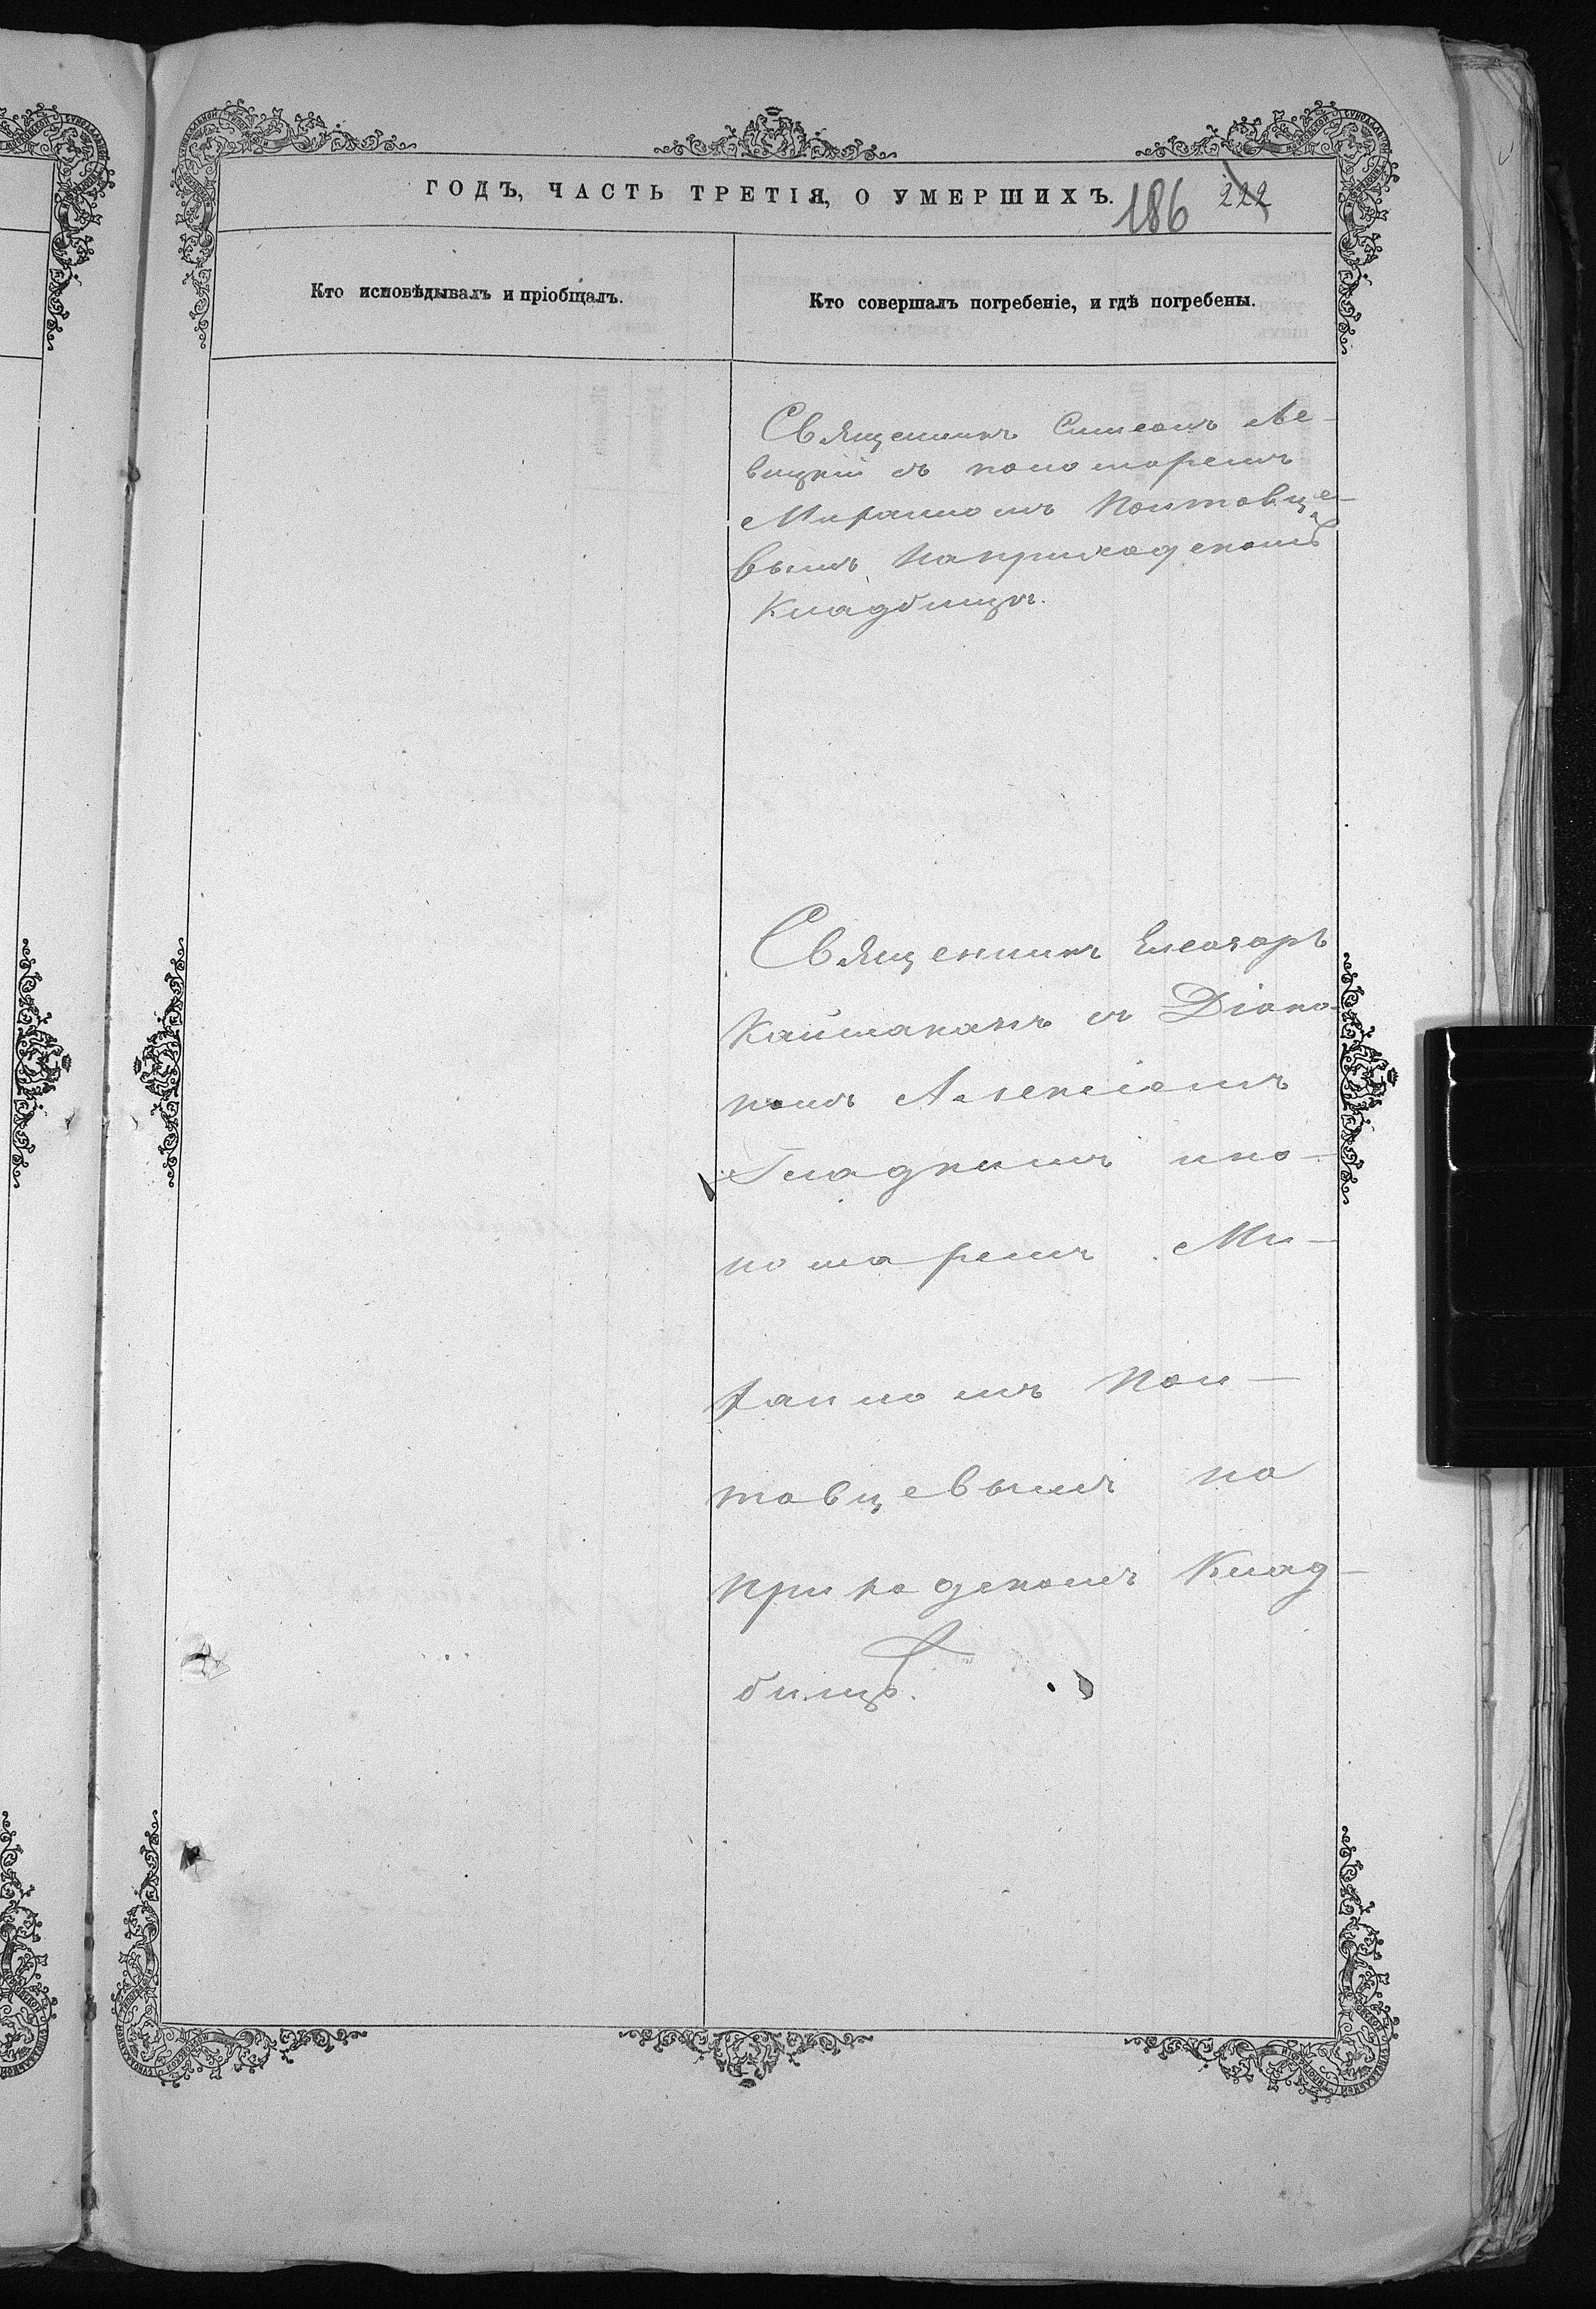 ГОДЪ, ЧАСТЬ ТРЕТІЯ, О УМЕРШИХЪ.
186 222
Кто исповѣдывалъ и пріобщалъ.
Кто совершалъ погребеніе, и гдѣ погребены.
Священникъ Симеонъ Ле-
вицкій съ пономаремъ
Мираномъ Полтавце-
вымъ на приходскомъ
Кладбищѣ.
Священникъ Елеазаръ
Каймаканъ съ Діако-
номъ Алексіемъ
Гладкимъ и по-
номаремъ Ми-
раномъ Пол-
тавцевымъ на
приходскомъ Клад-
бищѣ.